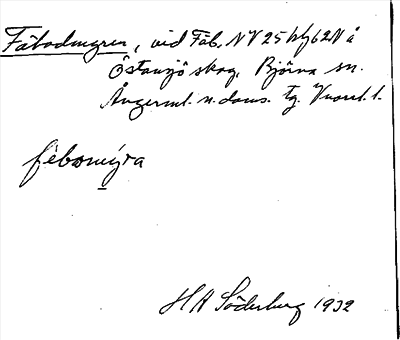 Fäbodmyren, vid Fäb. NV 25 h/g 62 N å
Östansjö skog, Björna sn.
Ångerml. n. doms. tg. Vnorrl. l.
febomýra
H A Söderberg 1932